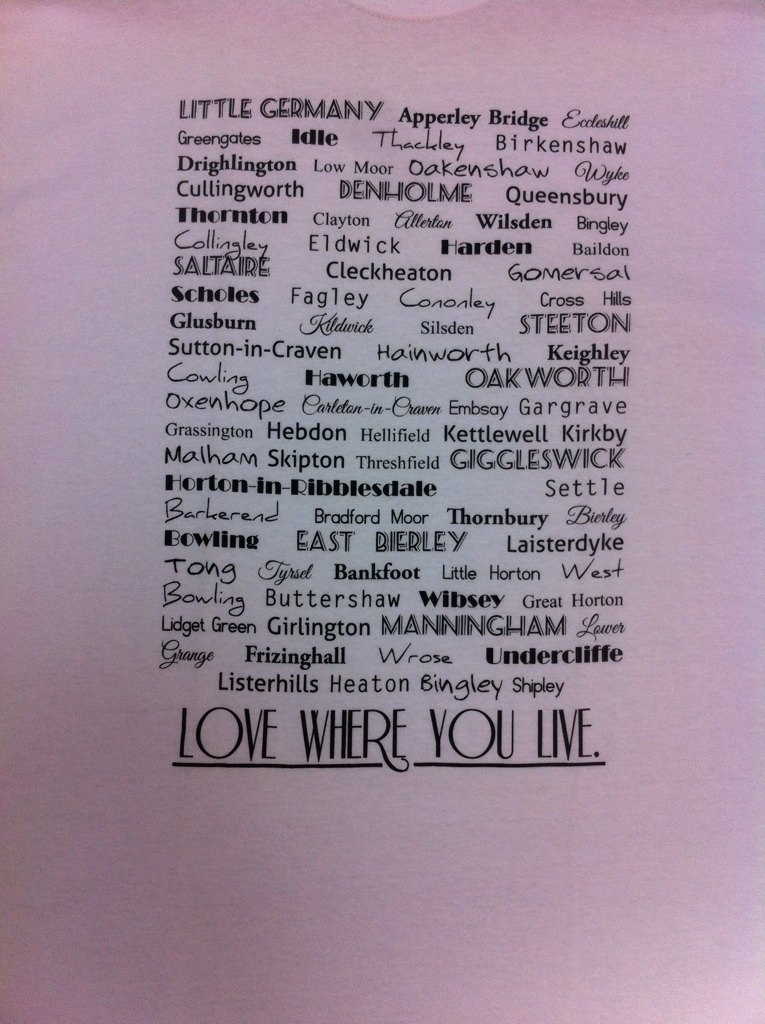 LITTLE GERMANY Apperley Bridge Eccleshill
Greengates Idle Thackley Birkenshaw
Drighlington Low Moor Oakenshaw Wyke
Cullingworth DENHOLME Queensbury
Thornton Clayton Allerton Wilsden Bingley
Collingley Eldwick Harden Baildon
SALTAIRE Cleckheaton Gomersal
Scholes Fagley Cononley Cross Hills
Glusburn Kildwick Silsden STEETON
Sutton-in-Craven Hainworth Keighley
Cowling Haworth OAKWORTH
Oxenhope Carleton-in-Craven Embsay Gargrave
Grassington Hebdon Hellifield Kettlewell Kirkby
Malham Skipton Threshfield GIGGLESWICK
Horton-in-Ribblesdale Settle
Barkerend Bradford Moor Thornbury Bierley
Bowling EAST BIERLEY Laisterdyke
Tong Tyrsel Bankfoot Little Horton West
Bowling Buttershaw Wibsey Great Horton
Lidget Green Girlington MANNINGHAM Lower
Grange Frizinghall Wrose Undercliffe
Listerhills Heaton Bingley Shipley
LOVE WHERE YOU LIVE.